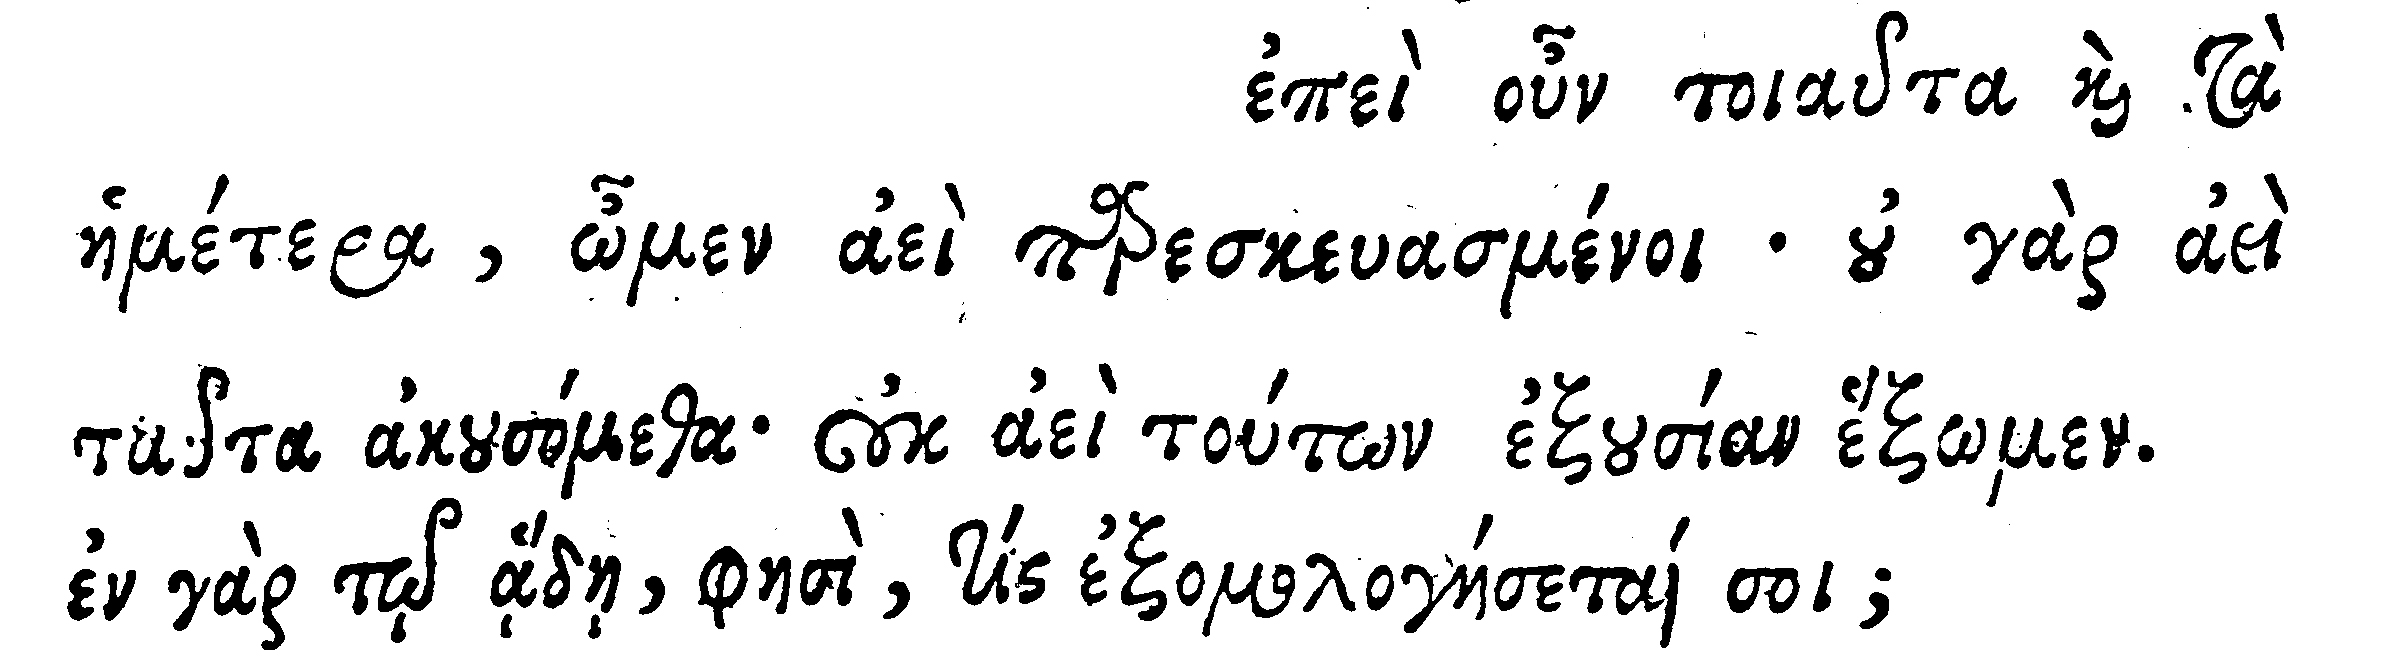 ἐπεὶ οὖν τοιαῦτα καὶ τὰ
ἡμέτερα, ὦμεν ἀεὶ παρεσκευασμένοι · οὐ γὰρ ἀεὶ
ταῦτα ἀκουσόμεθα· οὐκ ἀεὶ τούτων ἐξουσίαν ἕξωμεν.
ἐν γὰρ τῷ ᾅδῃ, φησὶ, τίς ἐξομολογήσεταί σοι;